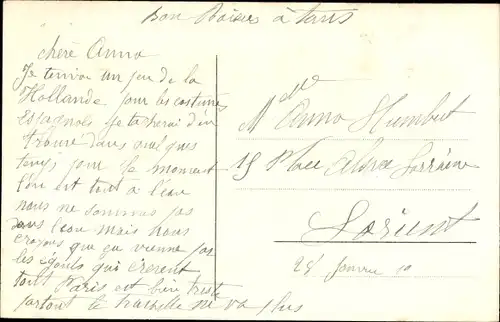 Bon Baisers à tous
chère Anna
Je t'envoie un peu de la
Hollande pour les costumes
Espagnols je tacherai d'en
trouvé dans quelques
temps, pour le moment
l'on est tout à l'eau
nous ne sommes pas
dans l'eau mais nous
crayons que ça vienne par
les égouts qui crèvent
tout Paris est bien triste
partout le ne va plus
Melle Anna Humbert
15 Place Alsace Lorraine
Lorient
28 Janvier 10